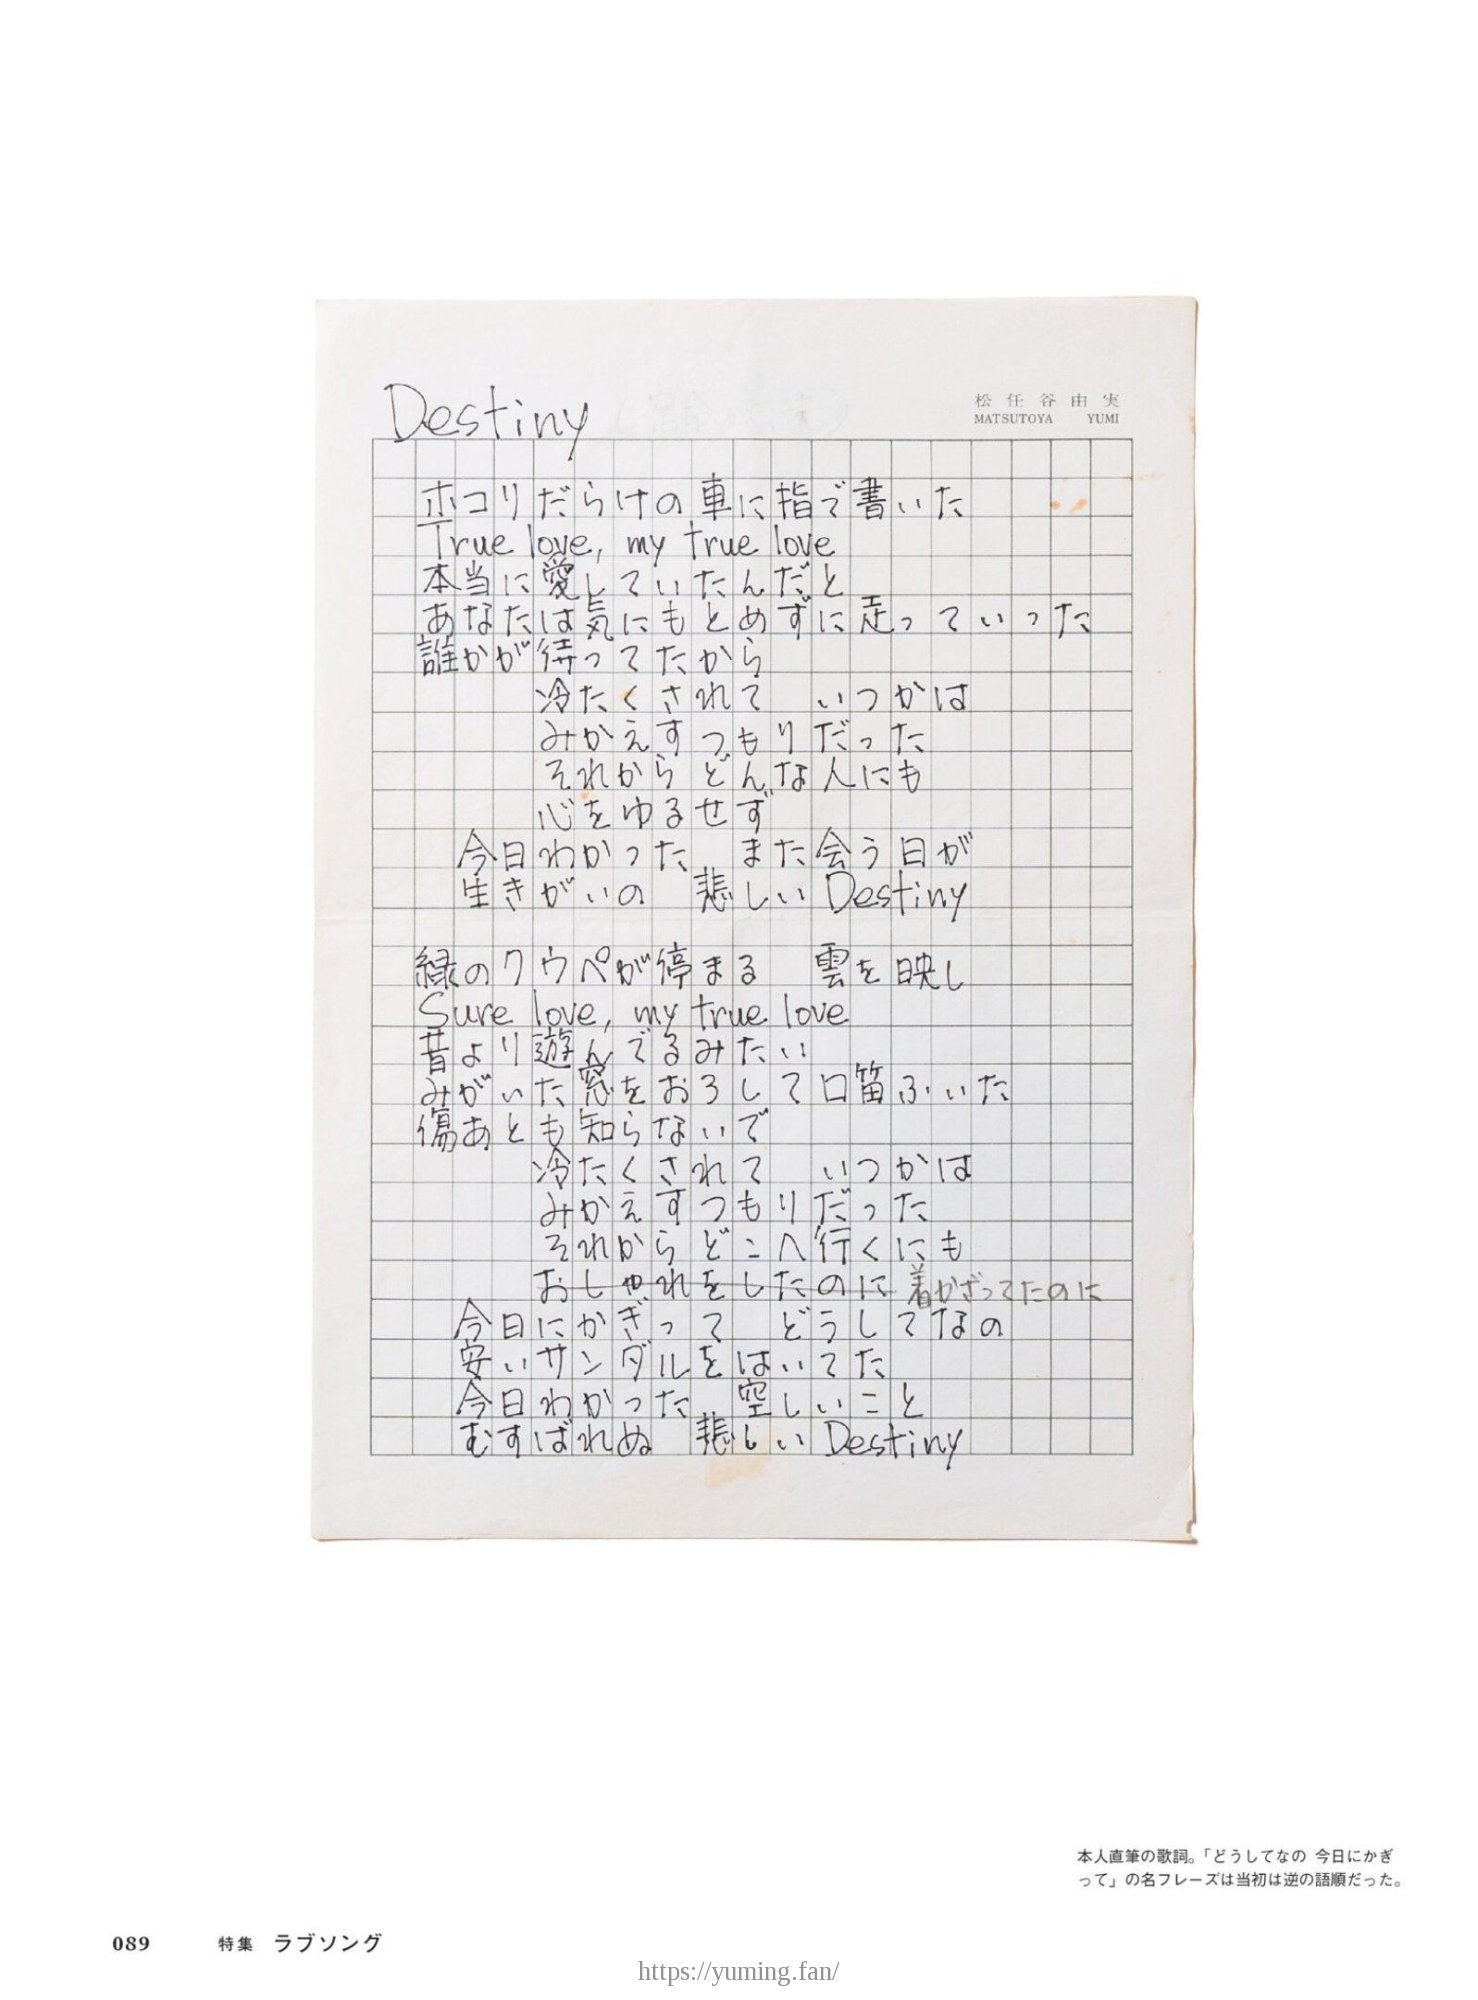 Destiny
松任谷由実
MATSUTOYA YUMI
ホコリだらけの車に指で書いた
True love, my true love
本当に愛していたんだと
あなたは気にもとめずに走っていった
誰かが待ってたから
冷たくされて いつかは
みかえすつもりだった
それから どんな人にも
心をゆるせず
今日わかった また会う日が
生きがいの 悲しいDestiny
緑のクウペが停まる 雲を映し
Sure love, my true love
昔より遊んでるみたい
みがいた窓をおろして口笛ふいた
傷あとも知らないで
冷たくされて いつかは
みかえすつもりだった
それから どこへ行くにも
おしゃれをしたのに 着かざってたのに
今日にかぎって どうしてなの
安いサンダルをはいてた
今日わかった 空しいこと
むすばれぬ 悲しいDestiny
本人直筆の歌詞。「どうしてなの 今日にかぎ
って」の名フレーズは当初は逆の語順だった。
089 特集 ラブソング
https://yuming.fan/